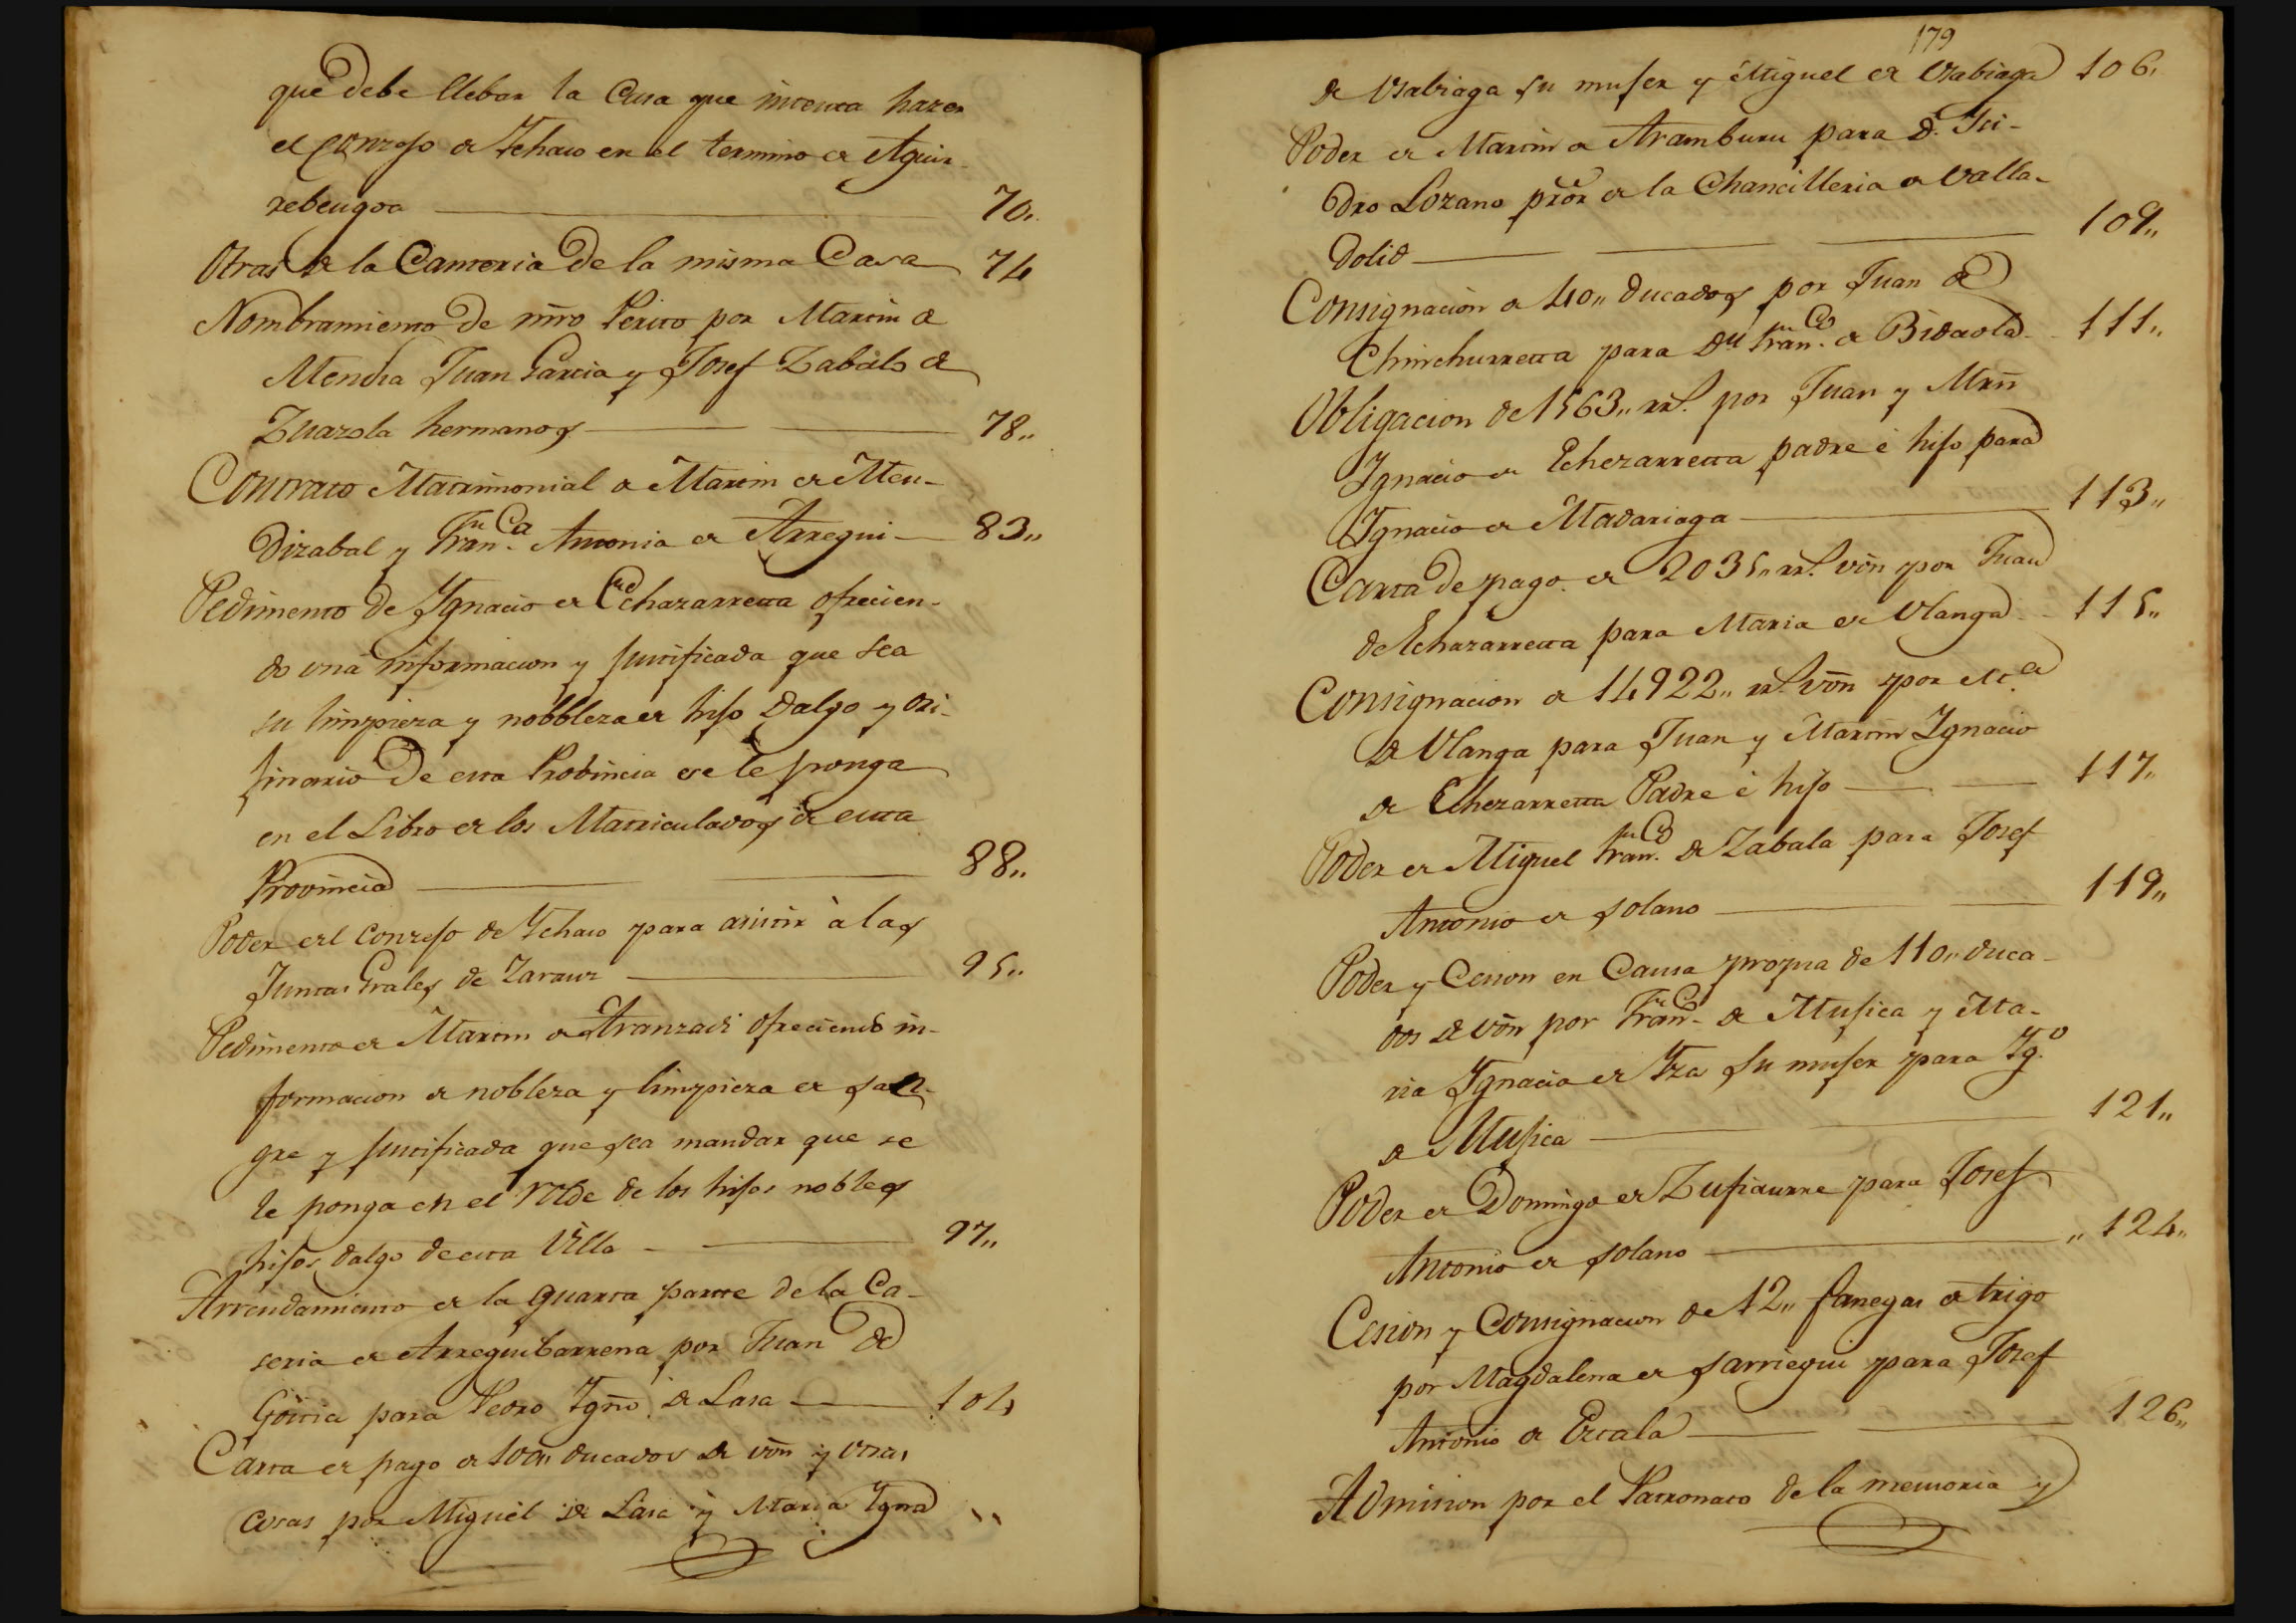 que debe llebar la Casa que intenta hazer
el Conzejo de Ychaso en el termino de Aguir-
rebengoa 70,,
Otras de la Canteria de la misma Casa 74
Nombramiento de mro Perito por Martin de
Mendia Juan Garcia y Josef Zabala de
Zuazola hermanos 78,,
Contrato Matrimonial de Martin de Men-
dizabal y Franca Antonia de Arregui 83,,
Pedimento de Ygnacio de Echazarreta ofrecien-
do una informacion y justificada que sea
su limpieza y nobbleza de hijo dalgo y ori-
jinario de esta Probincia se le ponga
en el Libro de los Matriculados de esta
Provincia 88,,
Poder del Conzejo de Ychaso para asistir à las
Juntas Grales de Zarauz 95,,
Pedimento de Martin de Aranzadi ofreciendo in-
formacion de nobleza y limpieza de san-
gre y justificada que sea mandar que se
le ponga en el rolde de los hijos nobles
hijos dalgo de esta Villa 97,,
Arrendamiento de la quarta parte de la Ca-
seria de Arreguibarrena por Juan de
Goitia para Pedro Ygno de Lasa 104
Carta de pago de 100,, ducados de von y otras
cosas por Miguel de Lasa y Maria Ygna ,,
179
de Usabiaga su mujer y Miguel de Usabiaga 106,
Poder de Martin de Aramburu para Dn. Isi-
dro Lozano pror de la Chancilleria de Valla-
dolid 109,,
Consignacion de 40,, ducados por Juan de
Chinchurreta para Dn Franco de Bidaola 111,,
Obligacion de 1563,, rrs. por Juan y Mrn
Ygnacio de Echezarreta padre é hijo para
Ygnacio de Madariaga 113,,
Carta de pago de 2035,, rrs. von por Juan
de Echazarreta para Maria de Ulanga 115,,
Consignacion de 14922,, rrs. von por Ma
de Ulanga para Juan y Martin Ygnacio
de Echezarreta Padre é hijo 117,,
Poder de Miguel Franco de Zabala para Josef
Antonio de Solano 119,,
Poder y Cesion en Causa propia de 110,, duca-
dos de von por Franco de Mujica y Ma-
ria Ygnacia de Yza su mujer para Ygo
de Mujica 121,,
Poder de Domingo de Zufiaurre para Josef
Antonio de Solano ,, 124,,
Cesion y Consignacion de 12,, fanegas de trigo
por Magdalena de Sarriegui para Josef
Antonio de Ezcala 126,,
Admision por el Patronato de la memoria y